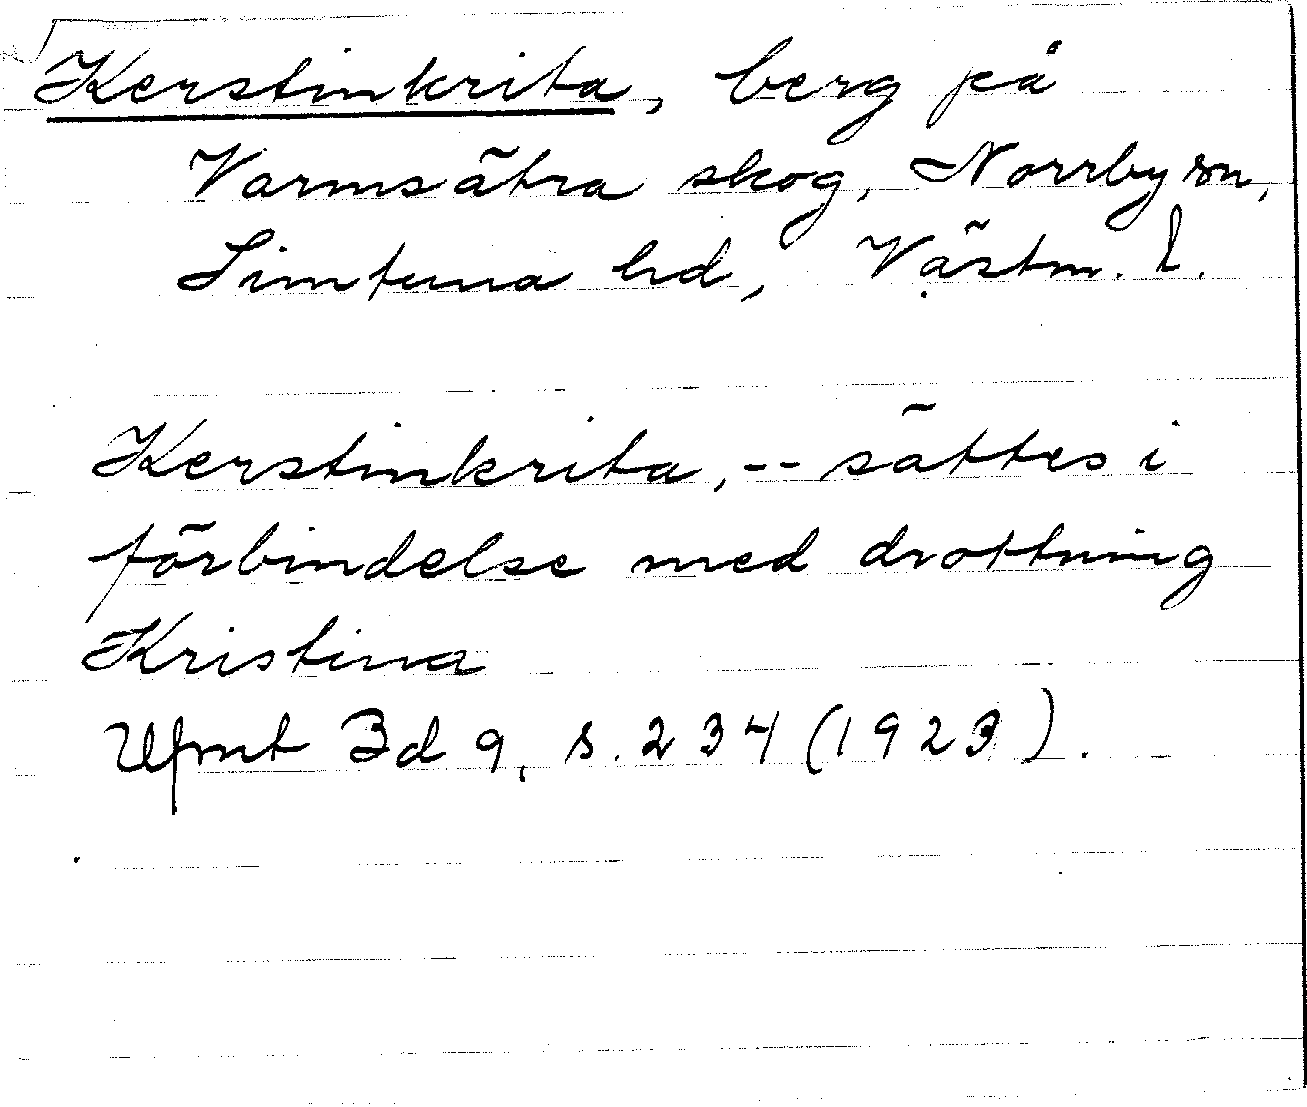 Kerstinkrita, berg på
Varmsätra skog, Norrby sn,
Simtuna hd, Västm. l.
Kerstinkrita, -- sättes i
förbindelse med drottning
Kristina
Ufmt Bd 9, s. 234 (1923).